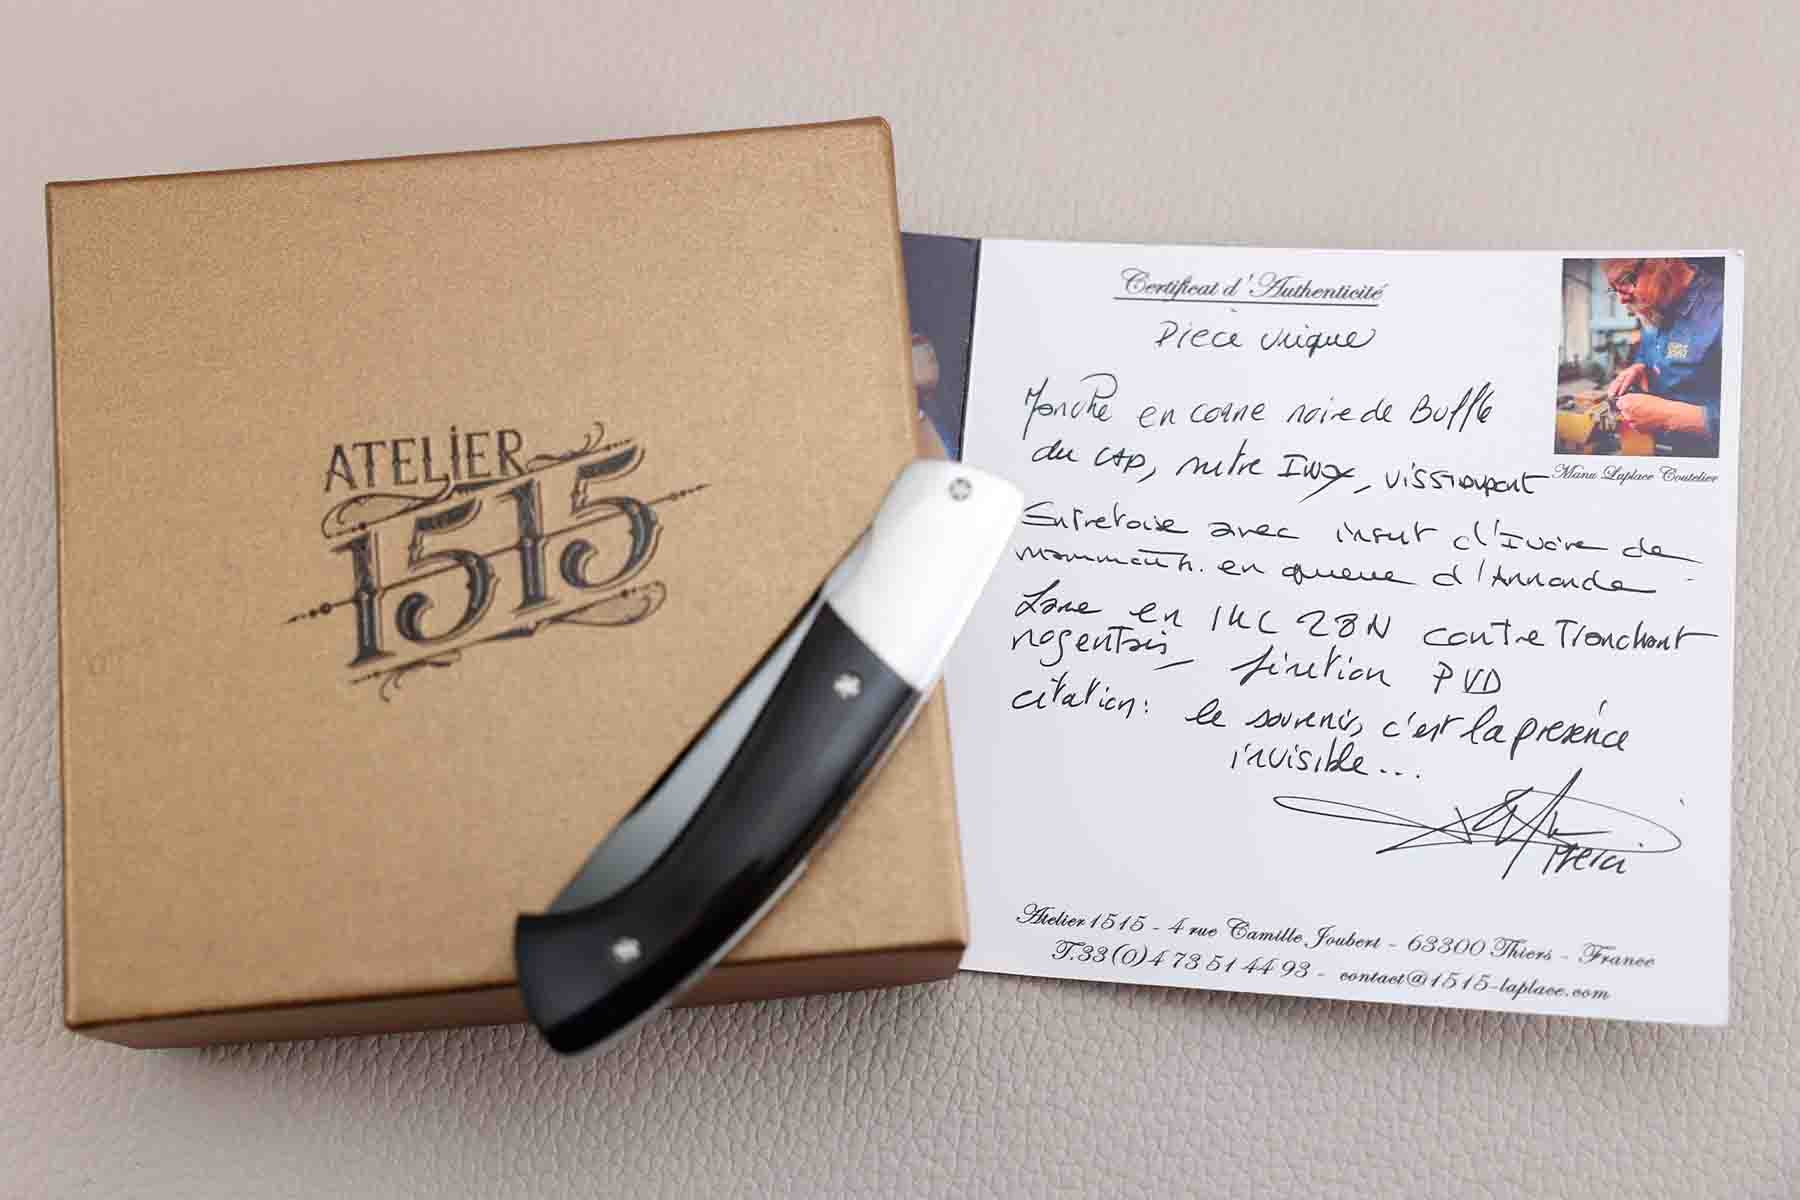 ATELIER
1515
Certificat d'Authenticité
Pièce unique
Manche en corne noire de Buffle
du CAP, mitre Inox,
Manu Laplace Coutelier
Entretoise avec insert d'Ivoire de
mammouth. en queue d'Aronde
Lame en 14C28N contre Tranchant
nogentais, finition PVD
citation: le souvenir, c'est la présence
invisible...
Merci
Atelier 1515 - 4 rue Camille Joubert - 63300 Thiers - France
T.33(0)4 73 51 44 93 - contact@1515-laplace.com